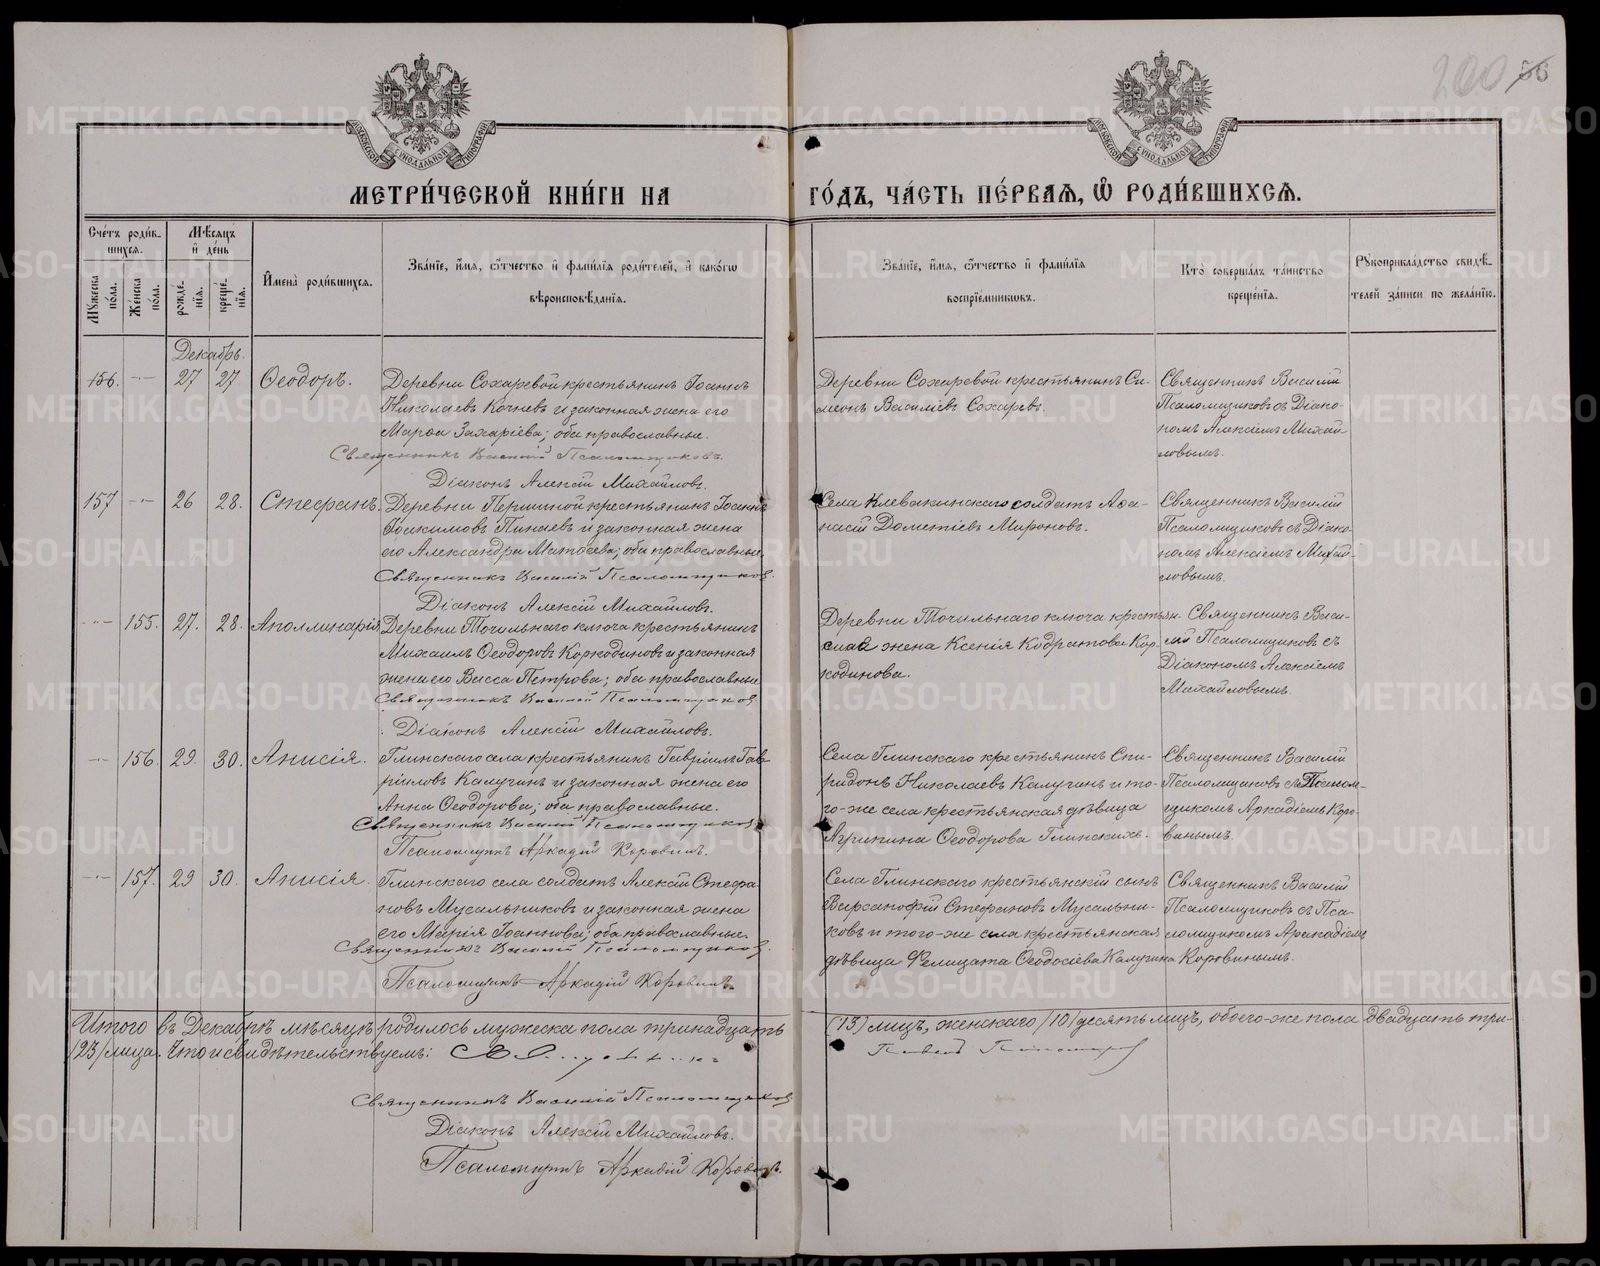 200 56
МОСКОВСКОЙ СѴНОДАЛЬНОЙ ТИПОГРАФІИ
МОСКОВСКОЙ СѴНОДАЛЬНОЙ ТИПОГРАФІИ
МЕТРИ́ЧЕСКОЙ КНИ́ГИ НА ГО́ДЪ, ЧА́СТЬ ПЕ́РВАѦ, Ѽ РОДИ́ВШИХСѦ.
Сче́тъ роди́в-
шихсѧ.
Мꙋ́жеска по́ла.
Же́нска по́ла.
Мѣ́сѧцъ
и҆ де́нь
рожде́-
нїѧ.
креще́-
нїѧ.
И҆мена̀ роди́вшихсѧ.
Зва́нїе, и҆́мѧ, ѻ҆́тчество и҆ фами́лїѧ роди́телей, и҆ како́гѡ
вѣроисповѣ́данїѧ.
Зва́нїе, и҆́мѧ, ѻ҆́тчество и҆ фами́лїѧ
воспрїе́мникѡвъ.
Кто̀ соверша́лъ та́инство
креще́нїѧ.
Рꙋкоприкла́дство свидѣ́-
телей за́писи по жела́нїю.
Декабрь.
156. -"- 27 27 Ѳеодоръ.
Деревни Сохаревой крестьянинъ Іоаннъ
Николаевъ Кочневъ и законная жена его
Марѳа Захаріева; оба православные.
Священникъ Василій Псаломщиковъ.
Діаконъ Алексій Михайловъ.
Деревни Сохаревой крестьянинъ Си-
меонъ Василіевъ Сохаревъ.
Священникъ Василій
Псаломщиковъ съ Діако-
номъ Алексіемъ Михай-
ловымъ.
157 -"- 26 28. Стефанъ.
Деревни Першиной крестьянинъ Іоаннъ
Іоакимовъ Пинаевъ и законная жена
его Александра Матѳеева; оба православные.
Священникъ Василій Псаломщиковъ.
Діаконъ Алексій Михайловъ.
Села Клевакинскаго солдатъ Аѳа-
насій Дометіевъ Мироновъ.
Священникъ Василій
Псаломщиковъ съ Діако-
номъ Алексіемъ Михай-
ловымъ.
-"- 155. 27. 28. Аполлинарія
Деревни Точильнаго ключа крестьянинъ
Михаилъ Ѳеодоровъ Коркодиновъ и законная
жена его Васса Петрова; оба православные.
Священникъ Василій Псаломщиковъ
Діаконъ Алексій Михайловъ.
Деревни Точильнаго ключа крестьян-
ская жена Ксенія Кодратова Кор-
кодинова.
Священникъ Васи-
лій Псаломщиковъ съ
Діакономъ Алексіемъ
Михайловымъ.
-"- 156. 29. 30. Анисія.
Глинскаго села крестьянинъ Гавріилъ Гав-
ріиловъ Калугинъ и законная жена его
Анна Ѳеодорова; оба православные.
Священникъ Василій Псаломщиковъ
Псаломщикъ Аркадій Коровинъ.
Села Глинскаго крестьянинъ Спи-
ридонъ Николаевъ Калугинъ и то-
го-же села крестьянская дѣвица
Агрипина Ѳеодорова Глинскихъ.
Священникъ Василій
Псаломщиковъ съ Псалом-
щикомъ Аркадіемъ Коро-
винымъ
-"- 157. 29 30. Анисія.
Глинскаго села солдатъ Алексій Стефа-
новъ Мусальниковъ и законная жена
его Марія Іоаннова; оба православные.
Священникъ Василій Псаломщиковъ.
Псаломщикъ Аркадій Коровинъ.
Села Глинскаго крестьянскій сынъ
Варсанофій Стефановъ Мусальни-
ковъ и того-же села крестьянская
дѣвица Фелицата Ѳеодосіева Калугина
Священникъ Василій
Псаломщиковъ съ Пса-
ломщикомъ Аркадіемъ
Коровинымъ.
Итого въ Декабрѣ мѣсяцѣ родилось мужеска пола тринадцать (13) лицъ, женскаго /10/ десять лицъ, обоего-же пола двадцать три-
/23/ лица. Что и свидѣтельствуемъ:
Священникъ Василій Псаломщиковъ
Діаконъ Алексій Михайловъ.
Псаломщикъ Аркадій Коровинъ.
METRIKI.GASO-URAL.RU